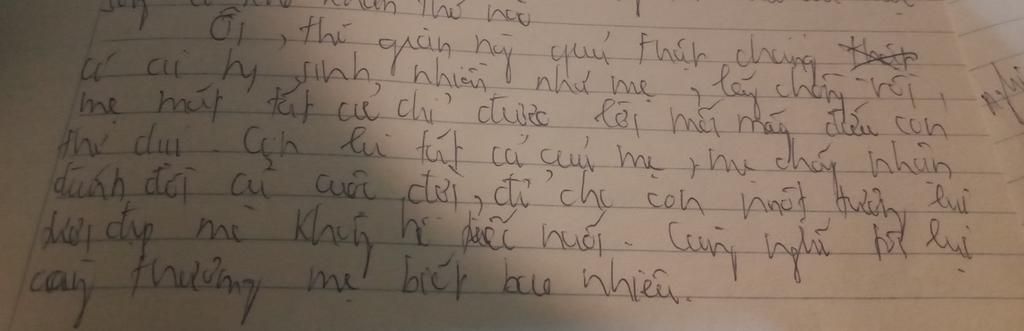 khăn thế nào
Ôi, thế gian này quý nhất chúng
có ai hy sinh nhiều như mẹ, lấy chồng rồi,
mẹ mất tất cả chỉ được lời mỗi mấy đứa con
thơ dại. Con là tất cả của mẹ, mẹ chấp nhận
đánh đổi cả cuộc đời, để cho con một tương lai
tươi đẹp mà không hề tiếc nuối. Càng nghĩ tôi lại
càng thương mẹ biết bao nhiêu.